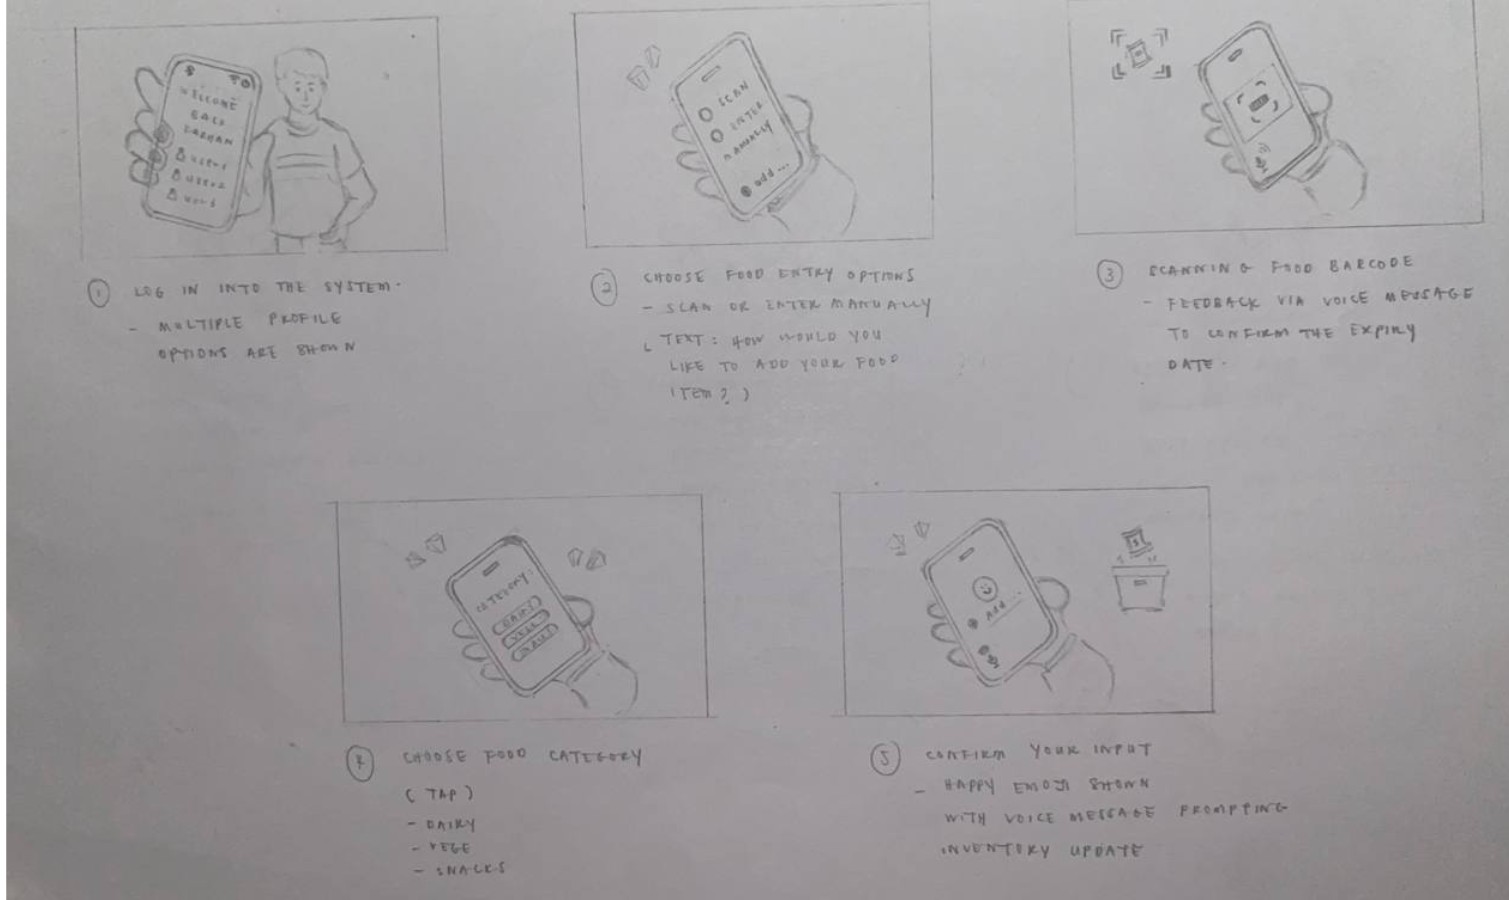 WELCOME
BACK
USER 1
USER 2
SCAN
ENTER
MANUALLY
add ...
1 LOG IN INTO THE SYSTEM.
- MULTIPLE PROFILE
OPTIONS ARE SHOWN
2 CHOOSE FOOD ENTRY OPTIONS
- SCAN OR ENTER MANUALLY
( TEXT : HOW WOULD YOU
LIKE TO ADD YOUR FOOD
ITEM ? )
3 SCANNING FOOD BARCODE
- FEEDBACK VIA VOICE MESSAGE
TO CONFIRM THE EXPIRY
DATE.
CATEGORY:
DAIRY
VEGE
SNACKS
Add ...
4 CHOOSE FOOD CATEGORY
( TAP )
- DAIRY
- VEGE
- SNACKS
5 CONFIRM YOUR INPUT
- HAPPY EMOJI SHOWN
WITH VOICE MESSAGE PROMPTING
INVENTORY UPDATE